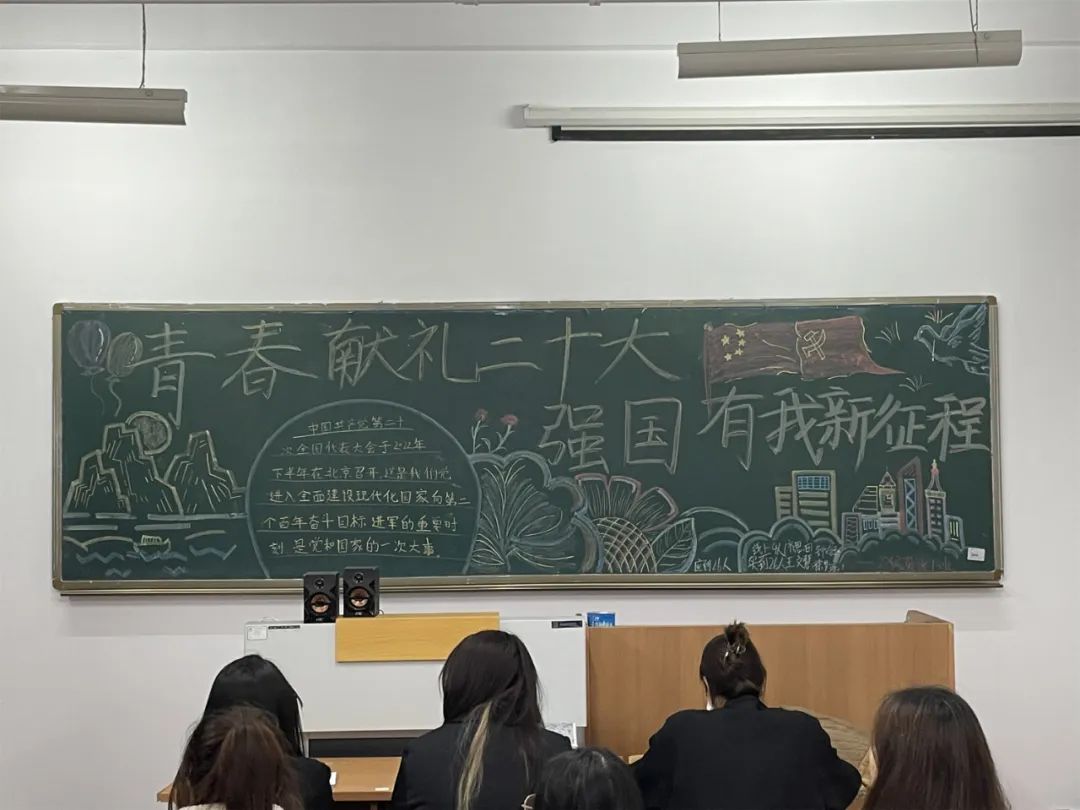 青春献礼二十大
强国有我新征程
中国共产党第二十
次全国代表大会于2022年
下半年在北京召开,这是我们党
进入全面建设现代化国家向第二
个百年奋斗目标进军的重要时
刻是党和国家的一次大事
应到26人
实到26人